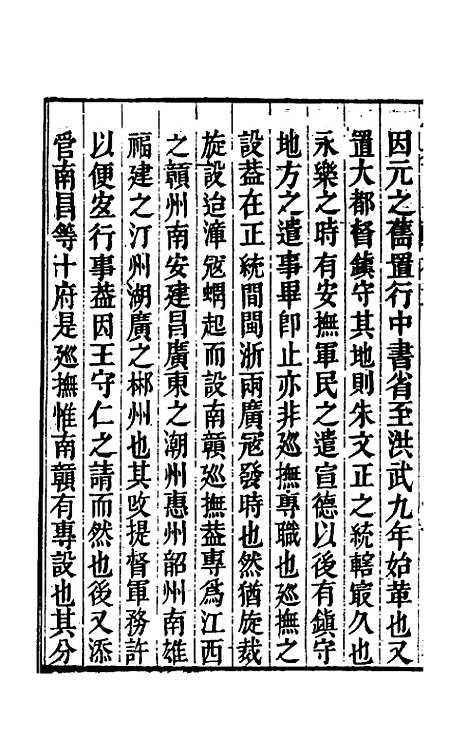 因元之舊置行中書省至洪武九年始革也又
置大都督鎮守其地則朱文正之統轄最久也
永樂之時有安撫軍民之遣宣德以後有鎮守
地方之遣事畢卽止亦非廵撫專職也廵撫之
設葢在正統間閩浙兩廣冦發時也然猶旋裁
旋設迨漳冦蝟起而設南贛廵撫葢專爲江西
之贛州南安建昌廣東之潮州惠州韶州南雄
福建之汀州湖廣之郴州也其攺提督軍務許
以便宜行事葢因王守仁之請而然也後又添
管南昌等十府是廵撫惟南贛有專設也其分